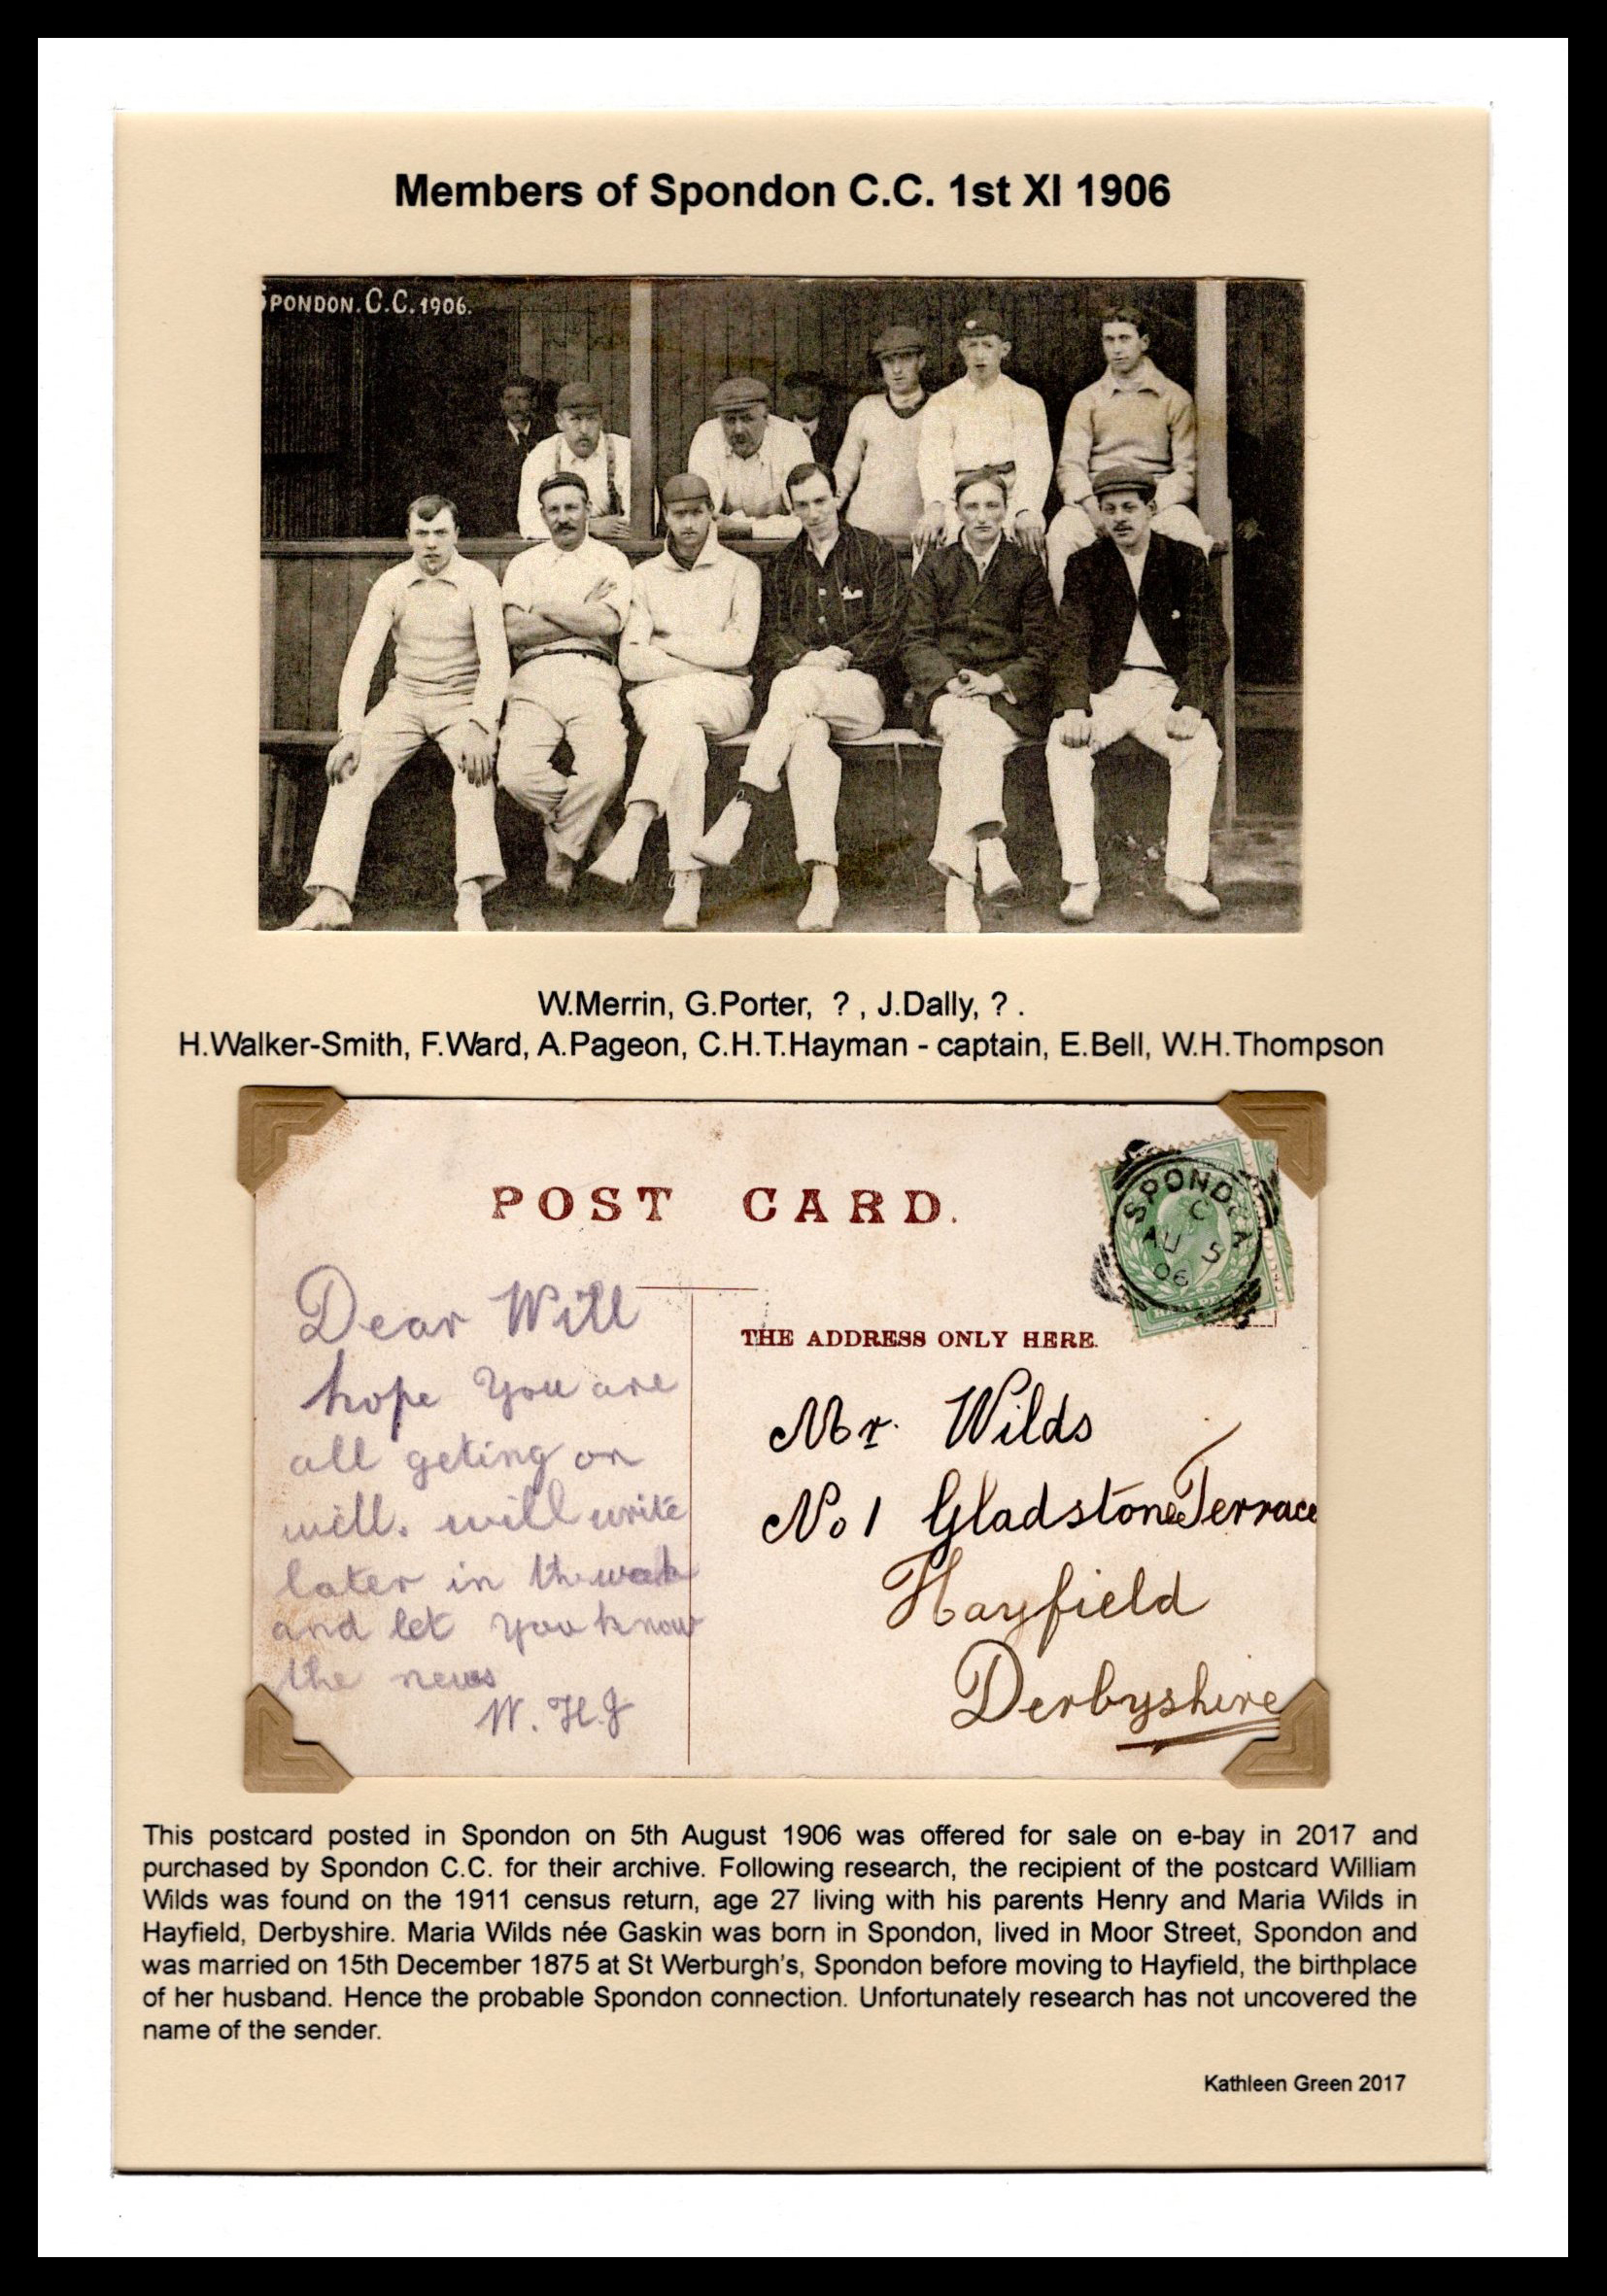 Members of Spondon C.C. 1st XI 1906
SPONDON. C.C. 1906.
W.Merrin, G.Porter, ? , J.Dally, ? .
H.Walker-Smith, F.Ward, A.Pageon, C.H.T.Hayman - captain, E.Bell, W.H.Thompson
POST CARD.
SPONDON
C
AU 5
06
Dear Will
hope you are
all geting on
well. will write
later in the week
and let you know
the news
W. H. J
THE ADDRESS ONLY HERE.
Mr. Wilds
No 1 Gladstone Terrace
Hayfield
Derbyshire
This postcard posted in Spondon on 5th August 1906 was offered for sale on e-bay in 2017 and
purchased by Spondon C.C. for their archive. Following research, the recipient of the postcard William
Wilds was found on the 1911 census return, age 27 living with his parents Henry and Maria Wilds in
Hayfield, Derbyshire. Maria Wilds née Gaskin was born in Spondon, lived in Moor Street, Spondon and
was married on 15th December 1875 at St Werburgh's, Spondon before moving to Hayfield, the birthplace
of her husband. Hence the probable Spondon connection. Unfortunately research has not uncovered the
name of the sender.
Kathleen Green 2017